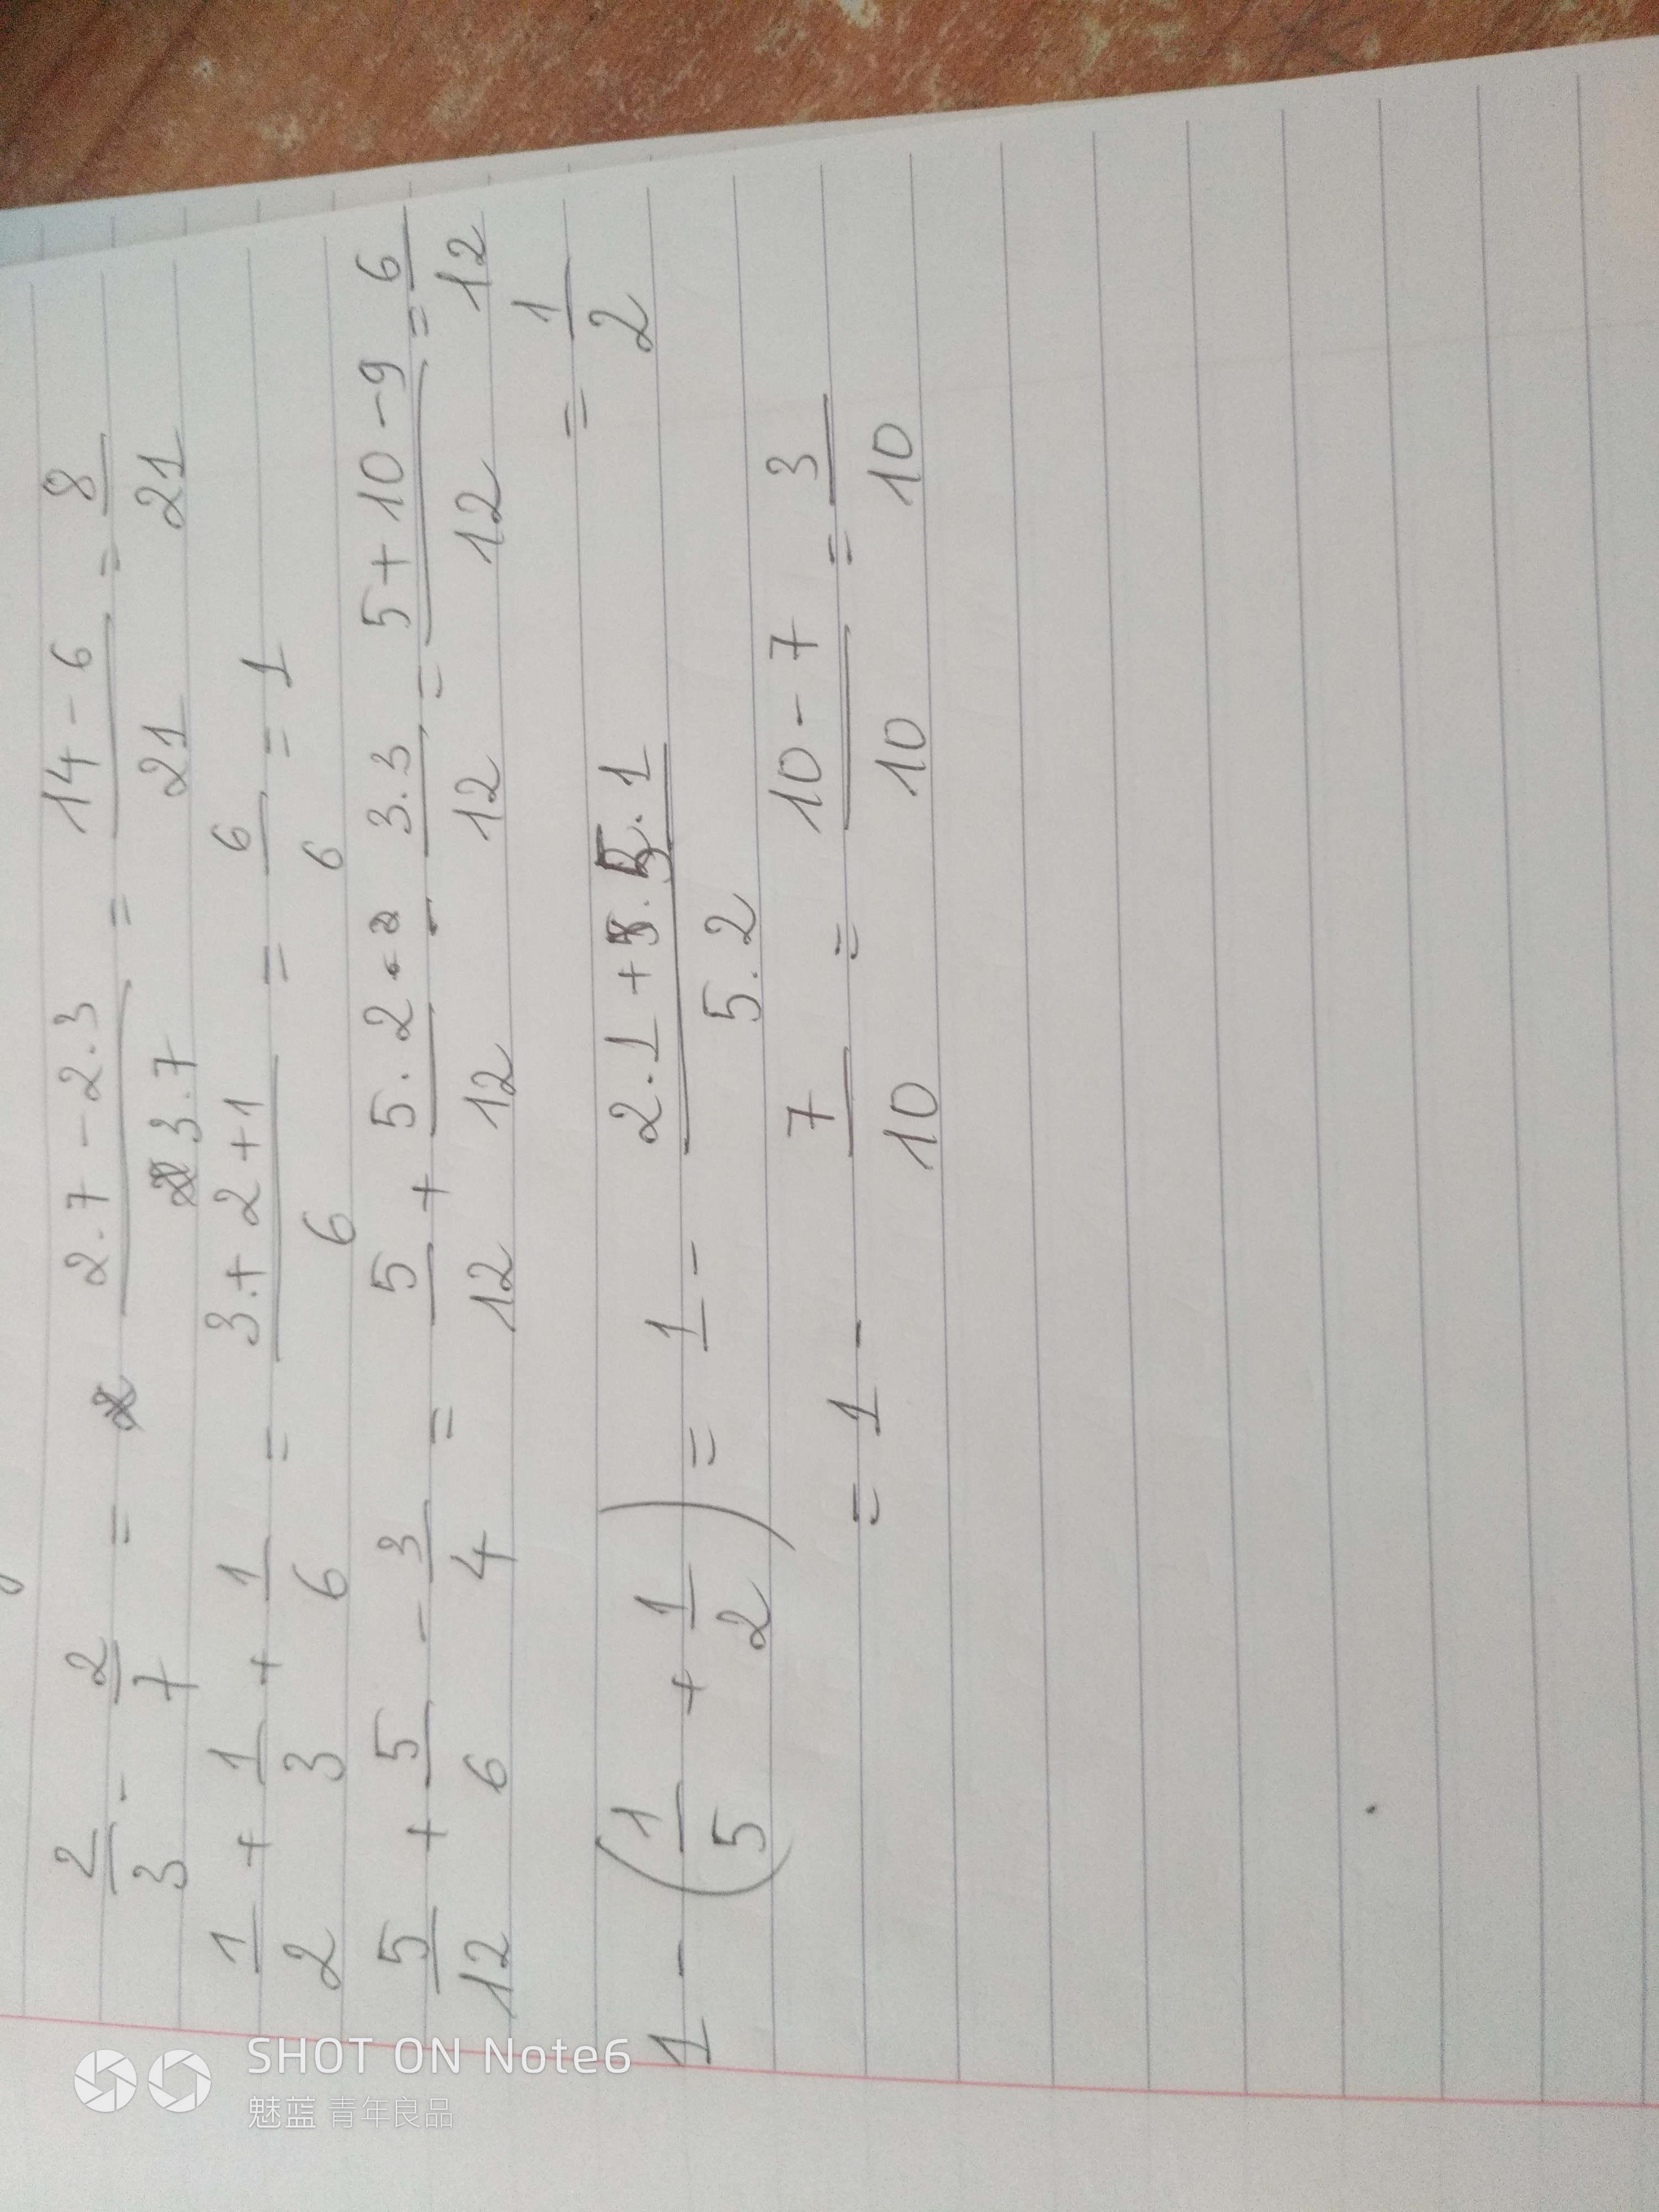 2/3 - 2/7 = (2.7 - 2.3)/(3.7) = (14 - 6)/21 = 8/21
1/2 + 1/3 + 1/6 = (3 + 2 + 1)/6 = 6/6 = 1
5/12 + 5/6 - 3/4 = 5/12 + (5.2)/12 - (3.3)/12 = (5 + 10 - 9)/12 = 6/12
= 1/2
1 - (1/5 + 1/2) = 1 - (2.1 + 5.1)/(5.2)
= 1 - 7/10 = (10 - 7)/10 = 3/10
SHOT ON Note6
魅蓝 青年良品